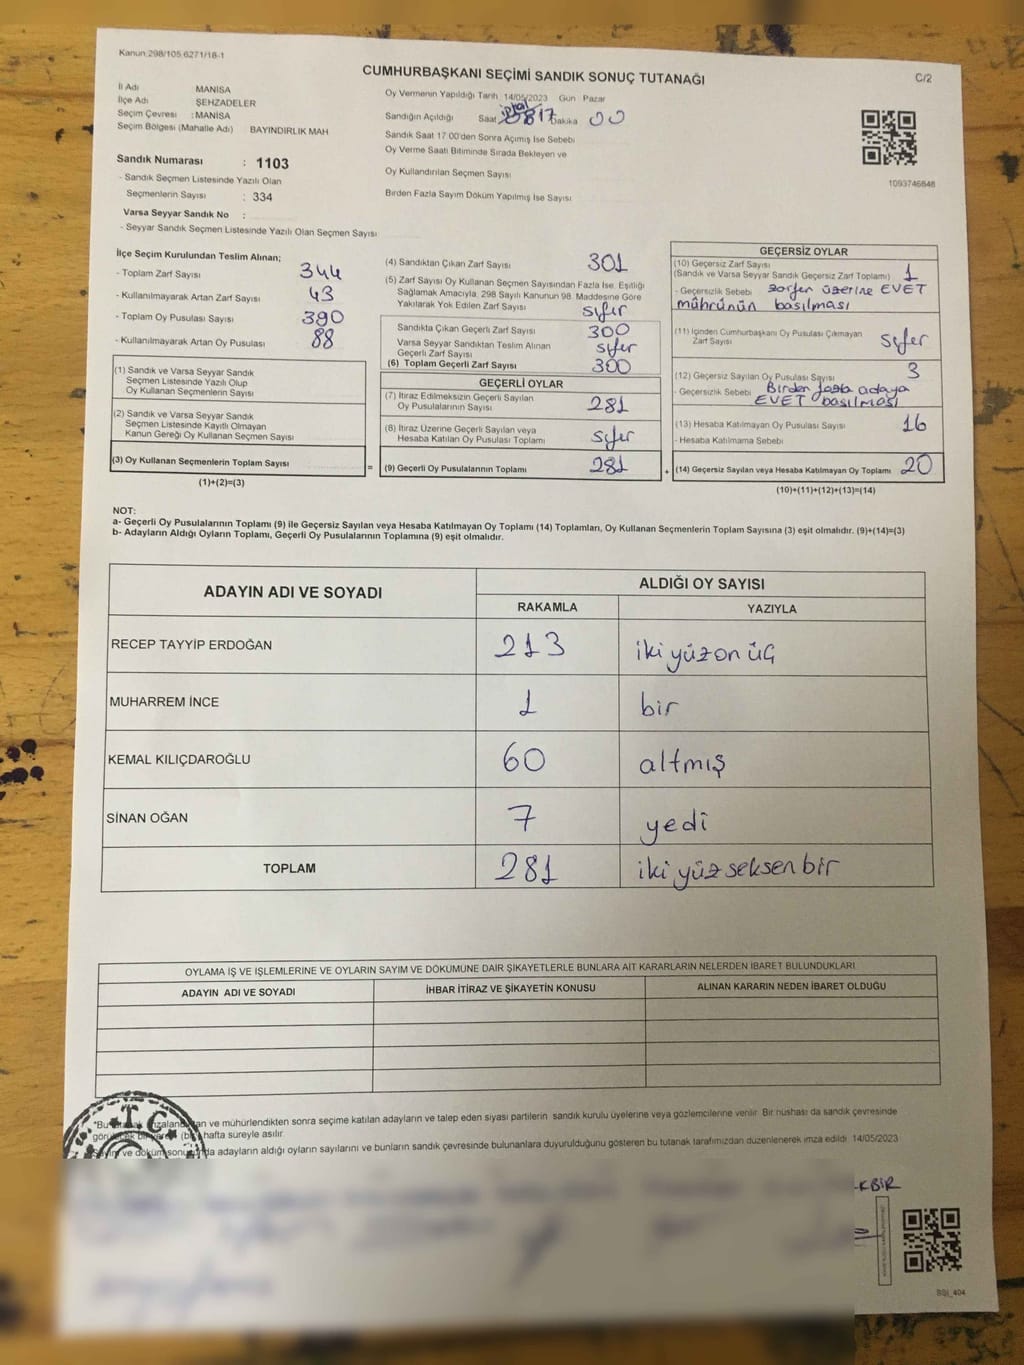 Kanun.298/105.6271/18-1
CUMHURBAŞKANI SEÇİMİ SANDIK SONUÇ TUTANAĞI
C/2
İl Adı MANİSA
İlçe Adı ŞEHZADELER
Seçim Çevresi : MANİSA
Seçim Bölgesi (Mahalle Adı) BAYINDIRLIK MAH
Sandık Numarası : 1103
- Sandık Seçmen Listesinde Yazılı Olan
Seçmenlerin Sayısı : 334
Varsa Seyyar Sandık No :
- Seyyar Sandık Seçmen Listesinde Yazılı Olan Seçmen Sayısı
Oy Vermenin Yapıldığı Tarih 14/05/2023 Gün Pazar
Sandığın Açıldığı Saat iptal 17 Dakika 00
Sandık Saat 17:00'den Sonra Açımış İse Sebebi
Oy Verme Saati Bitiminde Sırada Bekleyen ve
Oy Kullandırılan Seçmen Sayısı
Birden Fazla Sayım Döküm Yapılmış İse Sayısı
1093746848
İlçe Seçim Kurulundan Teslim Alınan;
- Toplam Zarf Sayısı 344
- Kullanılmayarak Artan Zarf Sayısı 43
- Toplam Oy Pusulası Sayısı 390
- Kullanılmayarak Artan Oy Pusulası 88
(1) Sandık ve Varsa Seyyar Sandık
Seçmen Listesinde Yazılı Olup
Oy Kullanan Seçmenlerin Sayısı
(2) Sandık ve Varsa Seyyar Sandık
Seçmen Listesinde Kayıtlı Olmayan
Kanun Gereği Oy Kullanan Seçmen Sayısı
(3) Oy Kullanan Seçmenlerin Toplam Sayısı
(1)+(2)=(3)
=
(4) Sandıktan Çıkan Zarf Sayısı 301
(5) Zarf Sayısı Oy Kullanan Seçmen Sayısından Fazla İse, Eşitliği
Sağlamak Amacıyla, 298 Sayılı Kanunun 98. Maddesine Göre
Yakılarak Yok Edilen Zarf Sayısı sıfır
Sandıkta Çıkan Geçerli Zarf Sayısı 300
Varsa Seyyar Sandıktan Teslim Alınan
Geçerli Zarf Sayısı sıfır
(6) Toplam Geçerli Zarf Sayısı 300
GEÇERLİ OYLAR
(7) İtiraz Edilmeksizin Geçerli Sayılan
Oy Pusulalarının Sayısı 281
(8) İtiraz Üzerine Geçerli Sayılan veya
Hesaba Katılan Oy Pusulası Toplamı sıfır
(9) Geçerli Oy Pusulalarının Toplamı 281
+
GEÇERSİZ OYLAR
(10) Geçersiz Zarf Sayısı
(Sandık ve Varsa Seyyar Sandık Geçersiz Zarf Toplamı) 1
- Geçersizlik Sebebi zarfın üzerine EVET
mührünün basılması
(11) İçinden Cumhurbaşkanı Oy Pusulası Çıkmayan
Zarf Sayısı sıfır
(12) Geçersiz Sayılan Oy Pusulası Sayısı 3
- Geçersizlik Sebebi Birden fazla adaya
EVET basılması
(13) Hesaba Katılmayan Oy Pusulası Sayısı 16
- Hesaba Katılmama Sebebi
(14) Geçersiz Sayılan veya Hesaba Katılmayan Oy Toplamı 20
(10)+(11)+(12)+(13)=(14)
NOT:
a- Geçerli Oy Pusulalarının Toplamı (9) ile Geçersiz Sayılan veya Hesaba Katılmayan Oy Toplamı (14) Toplamları, Oy Kullanan Seçmenlerin Toplam Sayısına (3) eşit olmalıdır. (9)+(14)=(3)
b- Adayların Aldığı Oyların Toplamı, Geçerli Oy Pusulalarının Toplamına (9) eşit olmalıdır.
ADAYIN ADI VE SOYADI
ALDIĞI OY SAYISI
RAKAMLA YAZIYLA
RECEP TAYYİP ERDOĞAN 213 iki yüz on üç
MUHARREM İNCE 1 bir
KEMAL KILIÇDAROĞLU 60 altmış
SİNAN OĞAN 7 yedi
TOPLAM 281 iki yüz seksen bir
OYLAMA İŞ VE İŞLEMLERİNE VE OYLARIN SAYIM VE DÖKÜMÜNE DAİR ŞİKAYETLERLE BUNLARA AİT KARARLARIN NELERDEN İBARET BULUNDUKLARI
ADAYIN ADI VE SOYADI İHBAR İTİRAZ VE ŞİKAYETİN KONUSU ALINAN KARARIN NEDEN İBARET OLDUĞU
T.C.
"Bu ve mühürlendikten sonra seçime katılan adayların ve talep eden siyasi partilerin sandık kurulu üyelerine veya gözlemcilerine verilir. Bir nüshası da sandık çevresinde
hafta süreyle asılır.
Sayım ve döküm sonucunda adayların aldığı oyların sayılarını ve bunların sandık çevresinde bulunanlara duyurulduğunu gösteren bu tutanak tarafımızdan düzenlenerek imza edildi. 14/05/2023
KBİR
BSI_404